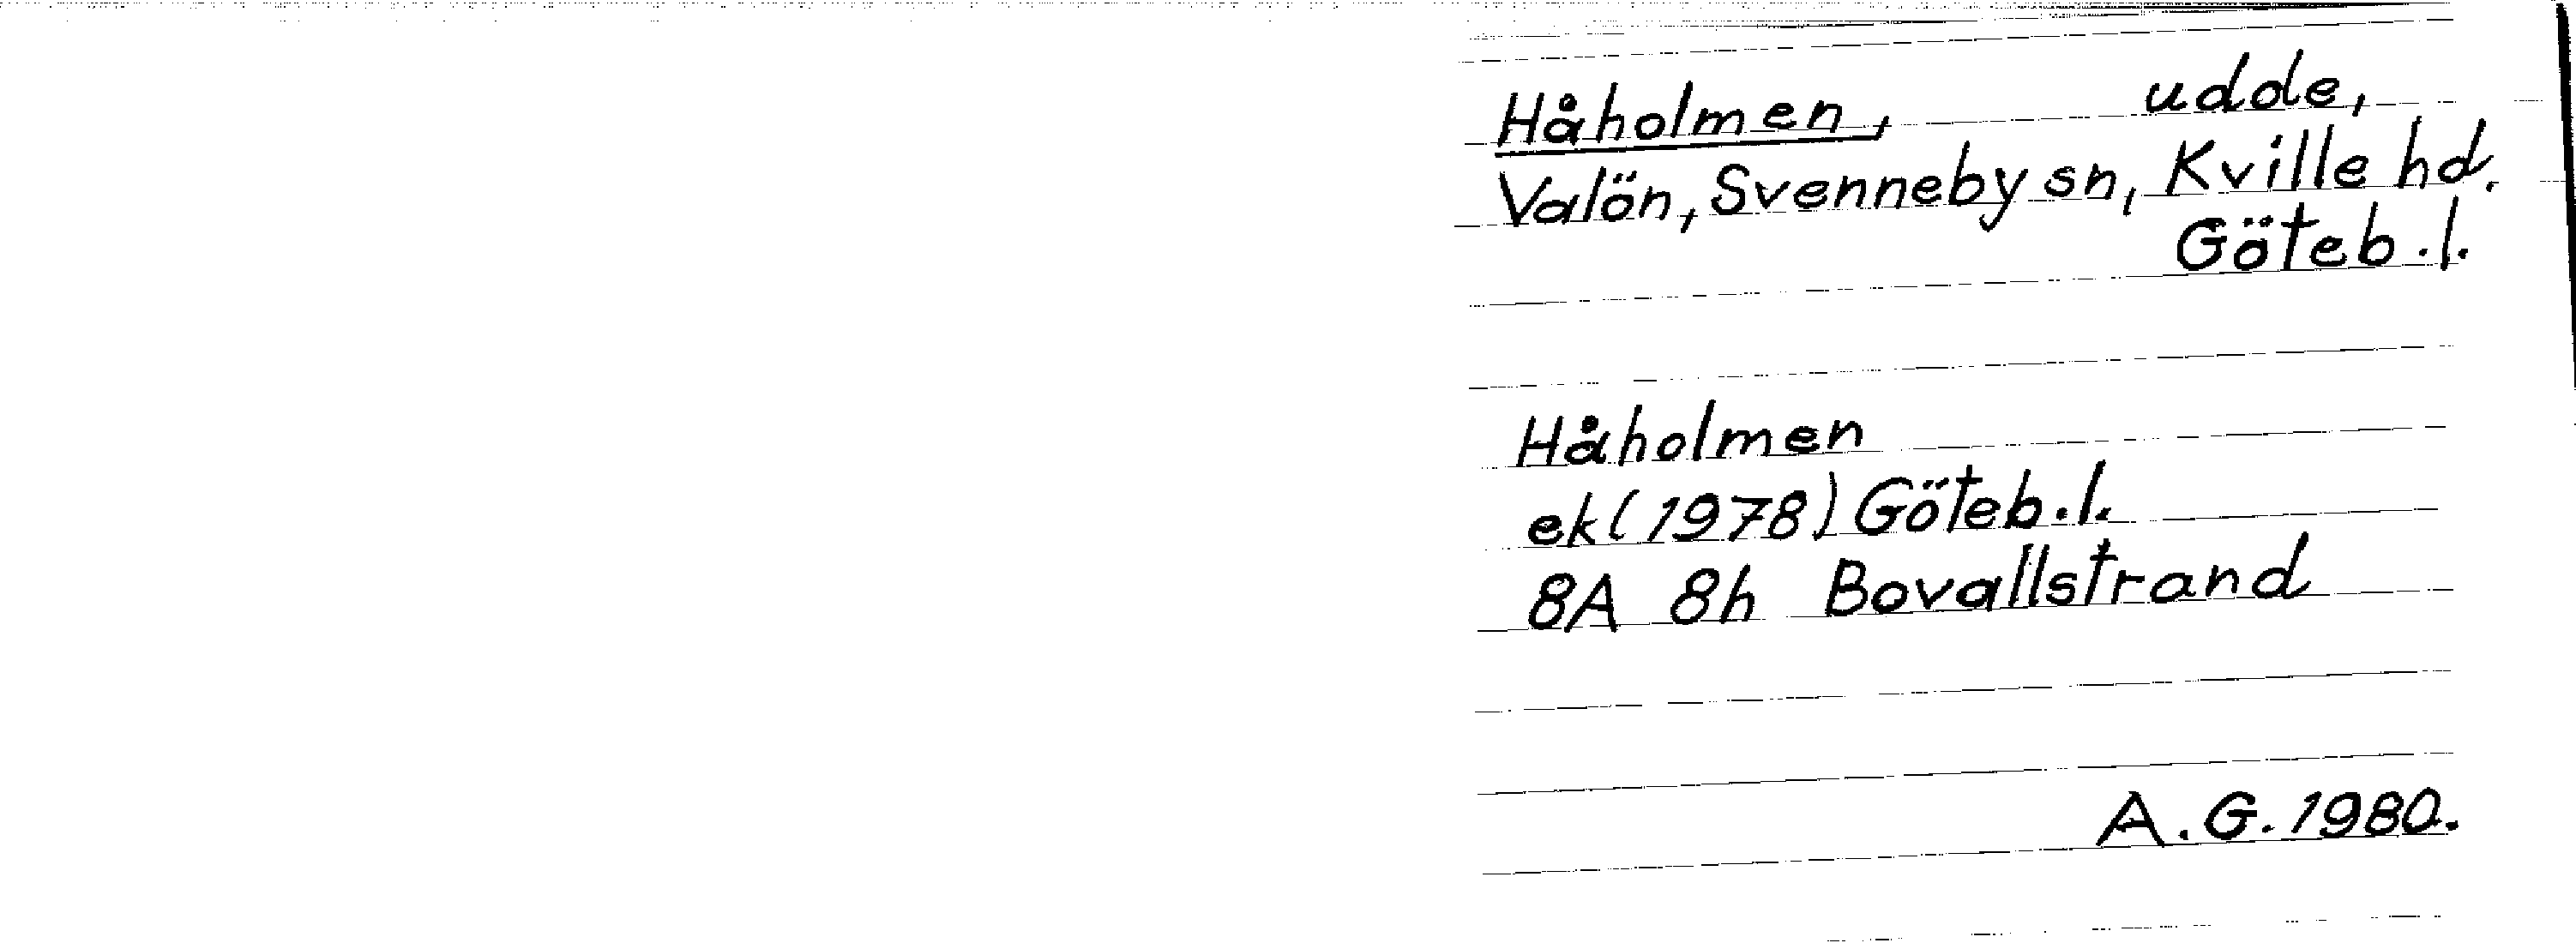 Håholmen, udde,
Valön, Svenneby sn, Kville hd.
Göteb.l.
Håholmen
ek (1978) Göteb.l.
8A 8h Bovallstrand
A.G. 1980.